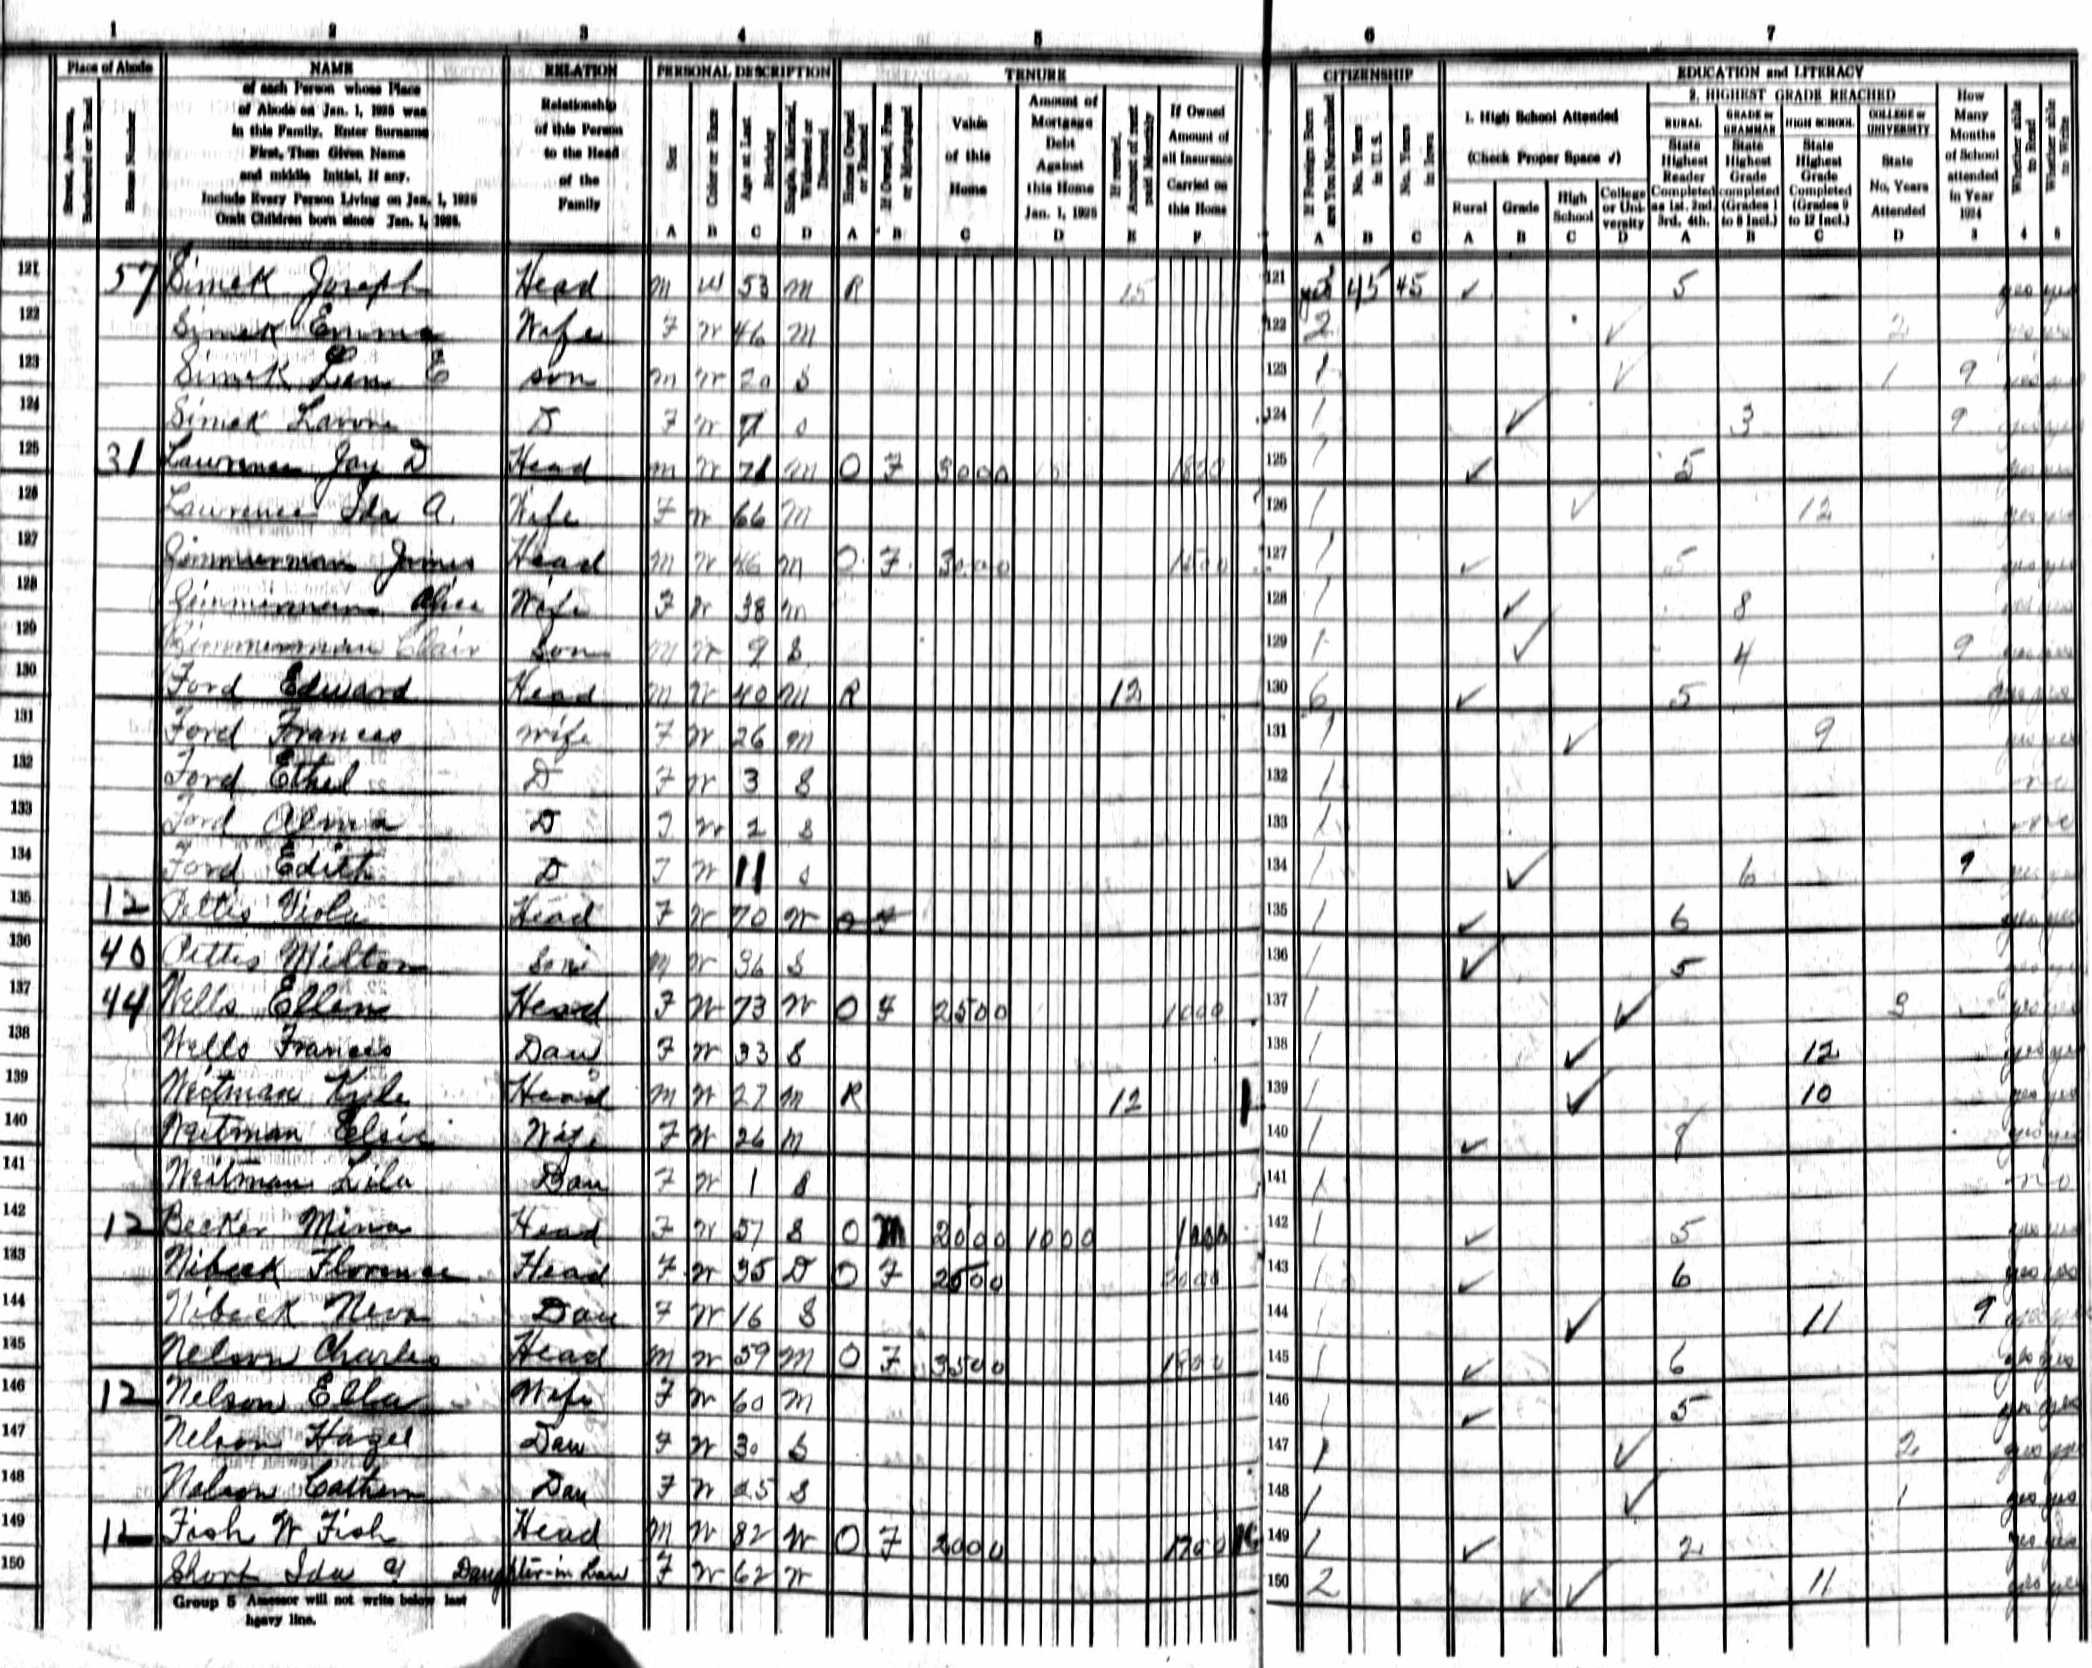 1 2 3 4 5 6 7
Place of Abode NAME RELATION PERSONAL DESCRIPTION TENURE CITIZENSHIP EDUCATION and LITERACY
Street, Avenue, Boulevard or Road
House Number
of each Person whose Place
of Abode on Jan. 1, 1925 was
in this Family. Enter Surname
First, Then Given Name
and middle Initial, if any.
Include Every Person Living on Jan. 1, 1925
Omit Children born since Jan. 1, 1925.
Relationship
of this Person
to the Head
of the
Family
Sex A
Color or Race B
Age at Last Birthday C
Single, Married, Widowed or Divorced D
Home Owned or Rented A
If Owned, Free or Mortgaged B
Value of this Home C
Amount of Mortgage Debt Against this Home Jan. 1, 1925 D
If rented, Amount of rent paid Monthly E
If Owned Amount of all Insurance Carried on this Home F
If Foreign Born are You Naturalized A
No. Years in U.S. B
No. Years in Iowa C
1. High School Attended
(Check Proper Space ✓)
Rural A
Grade B
High School C
College or University D
2. HIGHEST GRADE REACHED
RURAL State Highest Reader Completed as 1st, 2nd, 3rd, 4th. A
GRADE or GRAMMAR State Highest Grade completed (Grades 1 to 8 Incl.) B
HIGH SCHOOL State Highest Grade Completed (Grades 9 to 12 Incl.) C
COLLEGE or UNIVERSITY State No. Years Attended D
How Many Months of School attended in Year 1924 3
Whether able to Read 4
Whether able to Write 5
121 57 Simek Joseph Head M W 53 M R 15 121 yes 45 45 ✓ 5 yes yes
122 Simek Emma Wife F W 46 M 122 2 ✓ 2 yes yes
123 Simek E son M W 20 S 123 1 ✓ 1 9 yes yes
124 Simek D F W S 124 1 ✓ 3 9 yes yes
125 31 Lawrence Jay D Head M W 71 M O F 3000 1800 125 1 ✓ 5 yes yes
126 Lawrence Ida A. Wife F W 66 M 126 1 ✓ 12 yes yes
127 Zimmerman James Head M W 46 M O F 3000 1500 127 1 ✓ 5 yes yes
128 Zimmerman Alice Wife F W 38 M 128 1 ✓ 8 yes yes
129 Zimmerman Clair Son M W 9 S 129 1 ✓ 4 9 yes yes
130 Ford Edward Head M W 40 M R 12 130 6 ✓ 5 yes yes
131 Ford Frances wife F W 26 M 131 1 ✓ 9 yes yes
132 Ford Ethel D F W 3 S 132 1 no
133 Ford Alma D F W 2 S 133 1 no
134 Ford Edith D F W 11 S 134 1 ✓ 6 9 yes yes
135 12 Pettis Viola Head F W 70 W O F 135 1 ✓ 6 yes yes
136 40 Pettis Milton Son M W 36 S 136 1 ✓ 5 yes yes
137 44 Wells Ellen Head F W 73 W O F 2500 1000 137 1 ✓ 3 yes yes
138 Wells Frances Dau F W 33 S 138 1 ✓ 12 yes yes
139 Weitman Kyle Head M W 27 M R 12 139 1 ✓ 10 yes yes
140 Weitman Elsie Wife F W 26 M 140 1 ✓ 8 yes yes
141 Weitman Lila Dau F W 1 S 141 1 no
142 12 Becker Mina Head F W 57 S O M 2000 1000 1000 142 1 ✓ 5 yes yes
143 Nibeck Florence Head F W 35 D O F 2500 2000 143 1 ✓ 6 yes yes
144 Nibeck Neva Dau F W 16 S 144 1 ✓ 11 9 yes yes
145 Nelson Charles Head M W 59 M O F 3500 1800 145 1 ✓ 6 yes yes
146 12 Nelson Ella Wife F W 60 M 146 1 ✓ 5 yes yes
147 Nelson Hazel Dau F W 30 S 147 1 ✓ 2 yes yes
148 Nelson Cathern Dau F W 25 S 148 1 ✓ 1 yes yes
149 12 Fish W Fish Head M W 82 W O F 2000 1700 149 1 ✓ 2 yes yes
150 Short Ida Daughter-in Law F W 62 W 150 2 ✓ ✓ 11 yes yes
Group 5 Assessor will not write below last
heavy line.